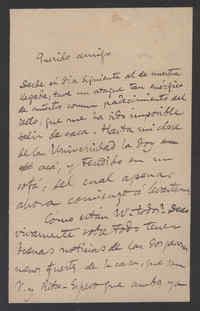 Querido amigo
Desde el día siguiente al de nuestra
llegada, tuve un ataque tan enérgico
de nuestro común padecimiento del
que me ha sido imposible
salir de casa. Hasta mi clase
de la Universidad la doy en
acá, y tendido en un
sofá, del cual apenas
ahora comienzo a levantarme
Como están V. todos? Deseo
vivamente sobre todo tener
buenas noticias de los dos
menos fuertes de la casa, que son
V. y Rita. Espero que ambos ya